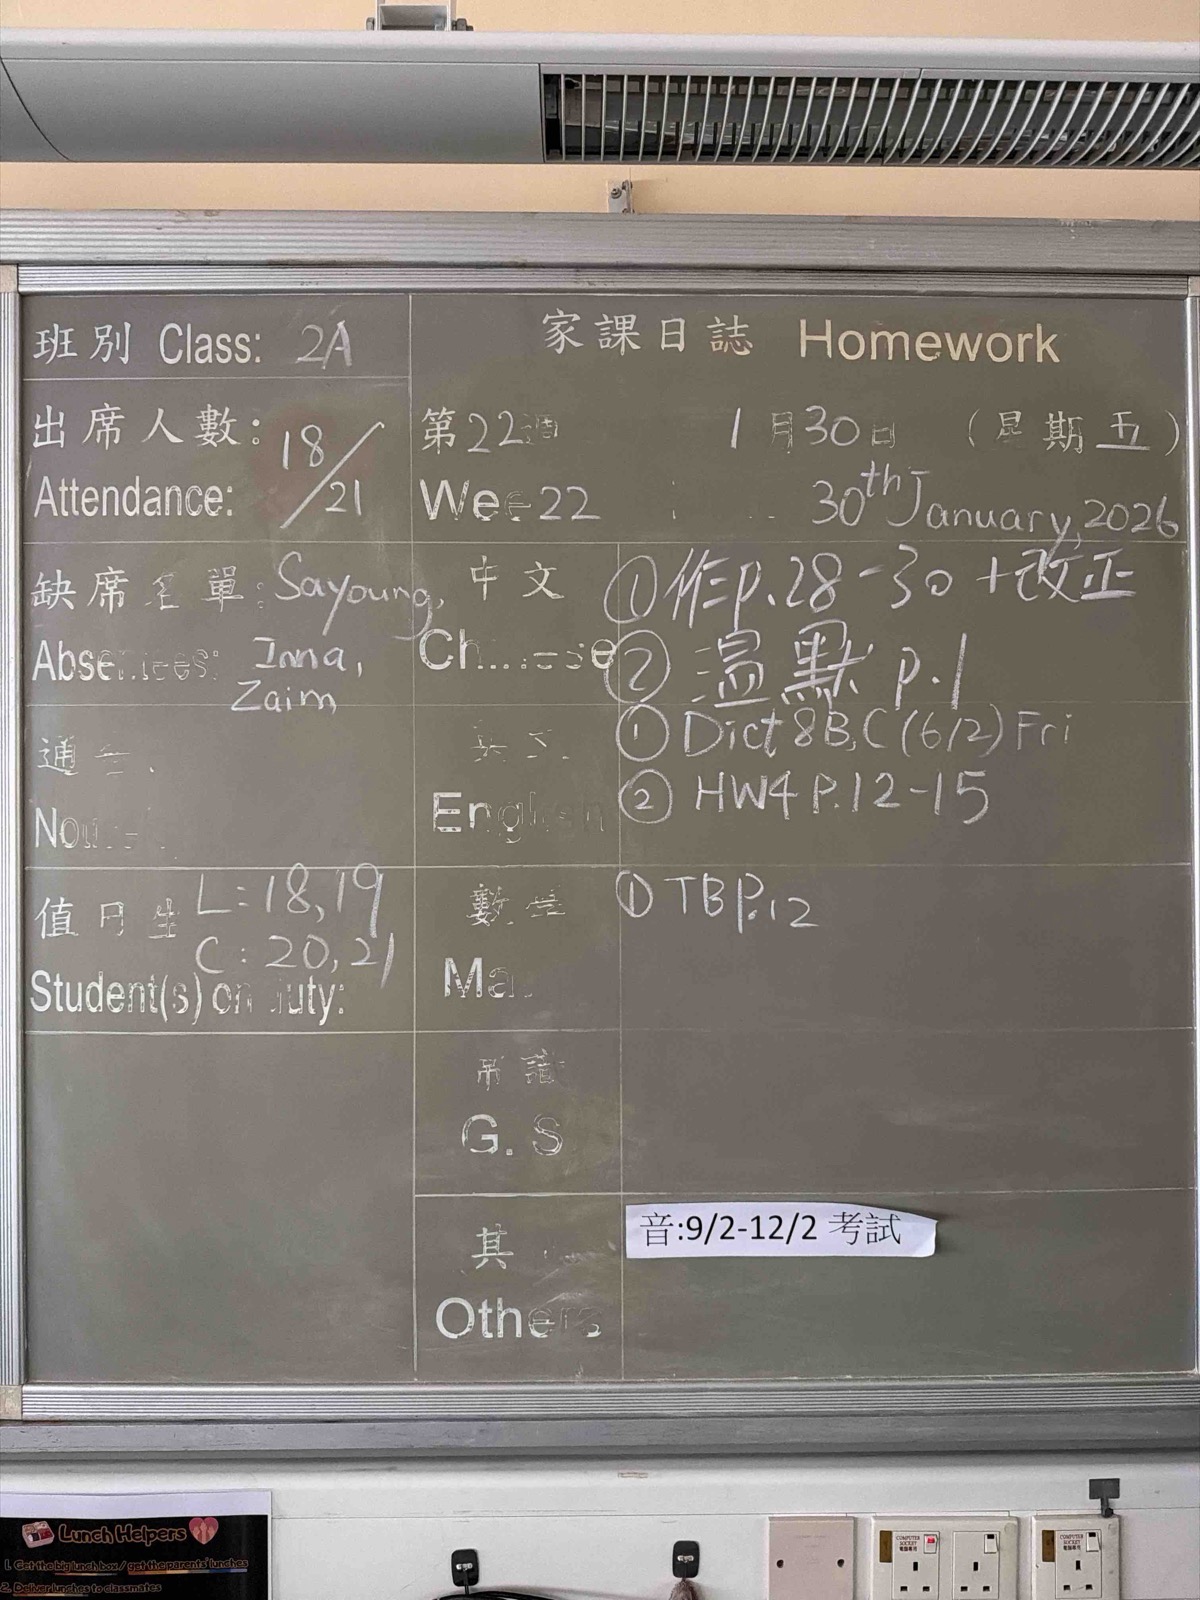 班別 Class: 2A
家課日誌 Homework
出席人數: 18/21
Attendance:
第22週 1月30日 (星期五)
Wee 22 30th January, 2026
缺席名單: Sayoung,
Absentees: Inna,
Zaim
中文
Chinese
①作p.28-30+改正
②溫默 p.1
通告
英文
English
①Dict 8B,C (6/2) Fri
②HW4 P.12-15
值日生 L:18,19
C:20,21
Student(s) on duty:
數學
Ma
①TB P.12
常識
G. S
其
Others
音:9/2-12/2 考試
Lunch Helpers
1. Get the big lunch box / get the parents' lunches
2. Deliver lunches to classmates
COMPUTER SOCKET
電腦專用
COMPUTER SOCKET
電腦專用